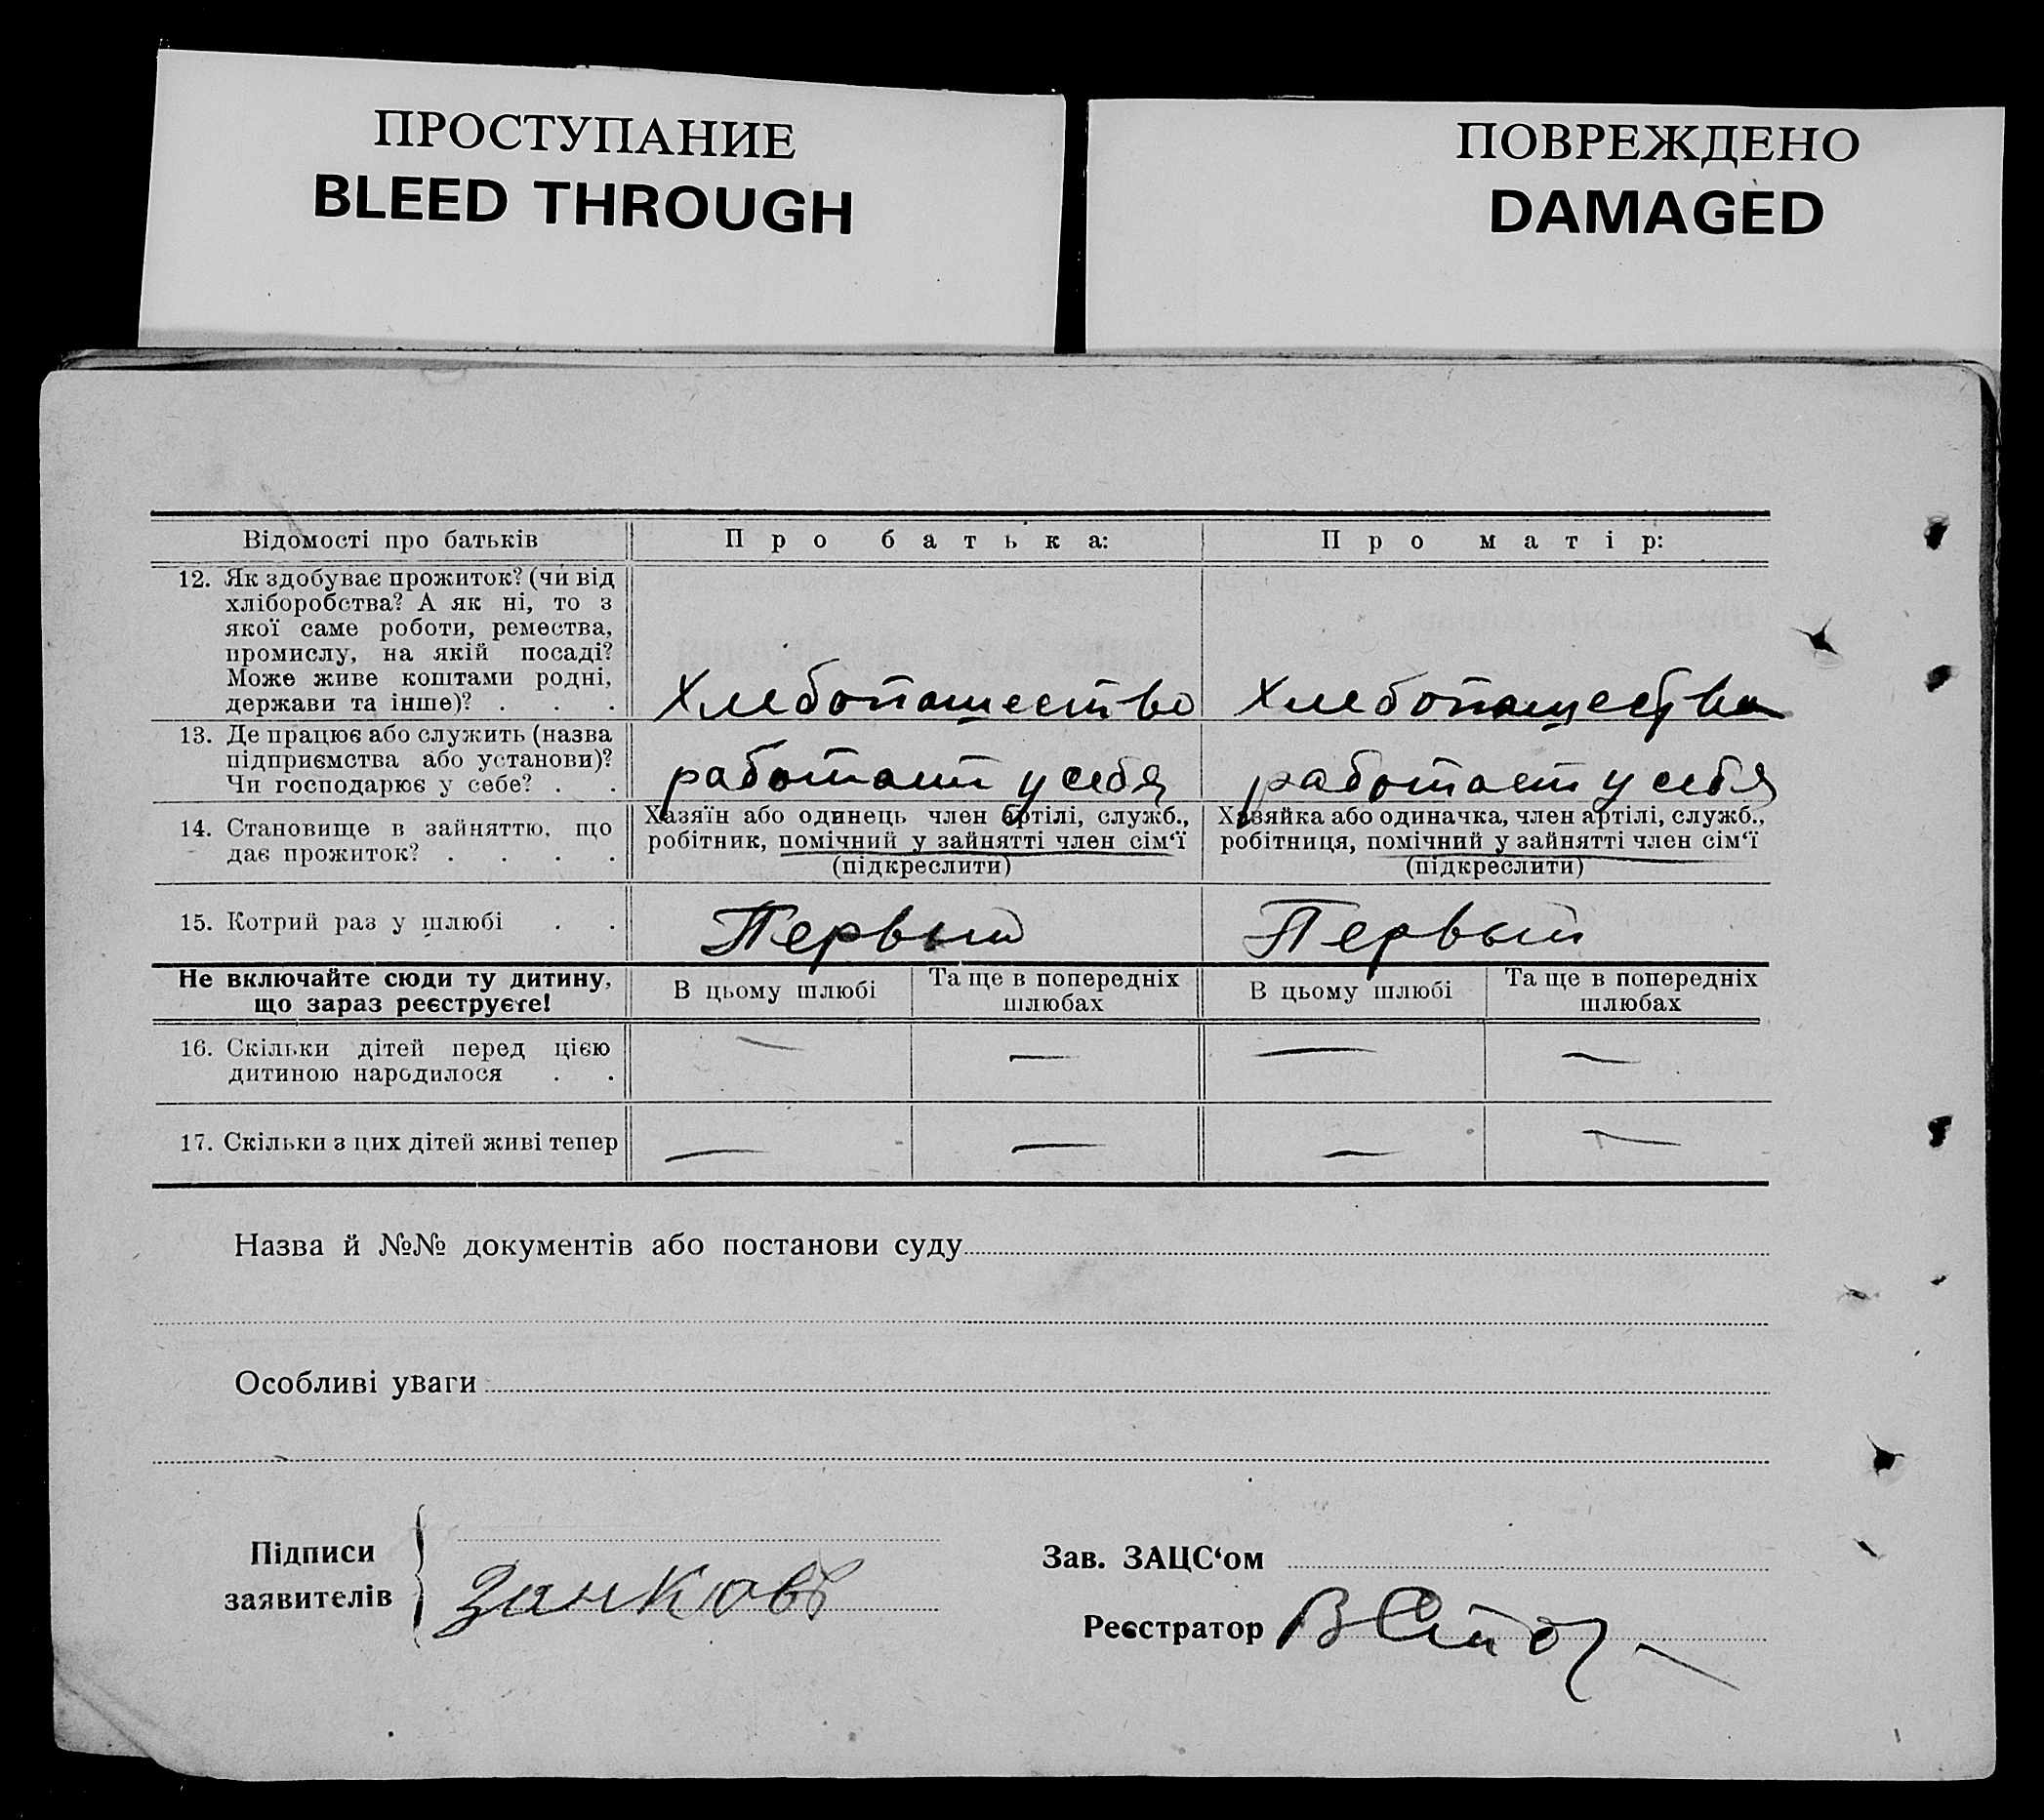 ПРОСТУПАНИЕ
BLEED THROUGH
ПОВРЕЖДЕНО
DAMAGED
Відомості про батьків
Про батька:
Про матір:
12. Як здобуває прожиток? (чи від
хліборобства? А як ні, то з
якої саме роботи, ремества,
промислу, на якій посаді?
Може живе коштами родні,
держави та інше)? . . .
Хлебопашество
Хлебопашества
13. Де працює або служить (назва
підприємства або установи)?
Чи господарює у себе? . .
работает у себя
работает у себя
14. Становище в зайняттю, що
дає прожиток? . . . .
Хазяїн або одинець член артілі, служб.,
робітник, помічний у зайнятті член сім‘ї
(підкреслити)
Хазяйка або одиначка, член артілі, служб.,
робітниця, помічний у зайнятті член сім‘ї
(підкреслити)
15. Котрий раз у шлюбі . .
Первый
Первый
Не включайте сюди ту дитину,
що зараз реєструєте!
В цьому шлюбі
Та ще в попередніх
шлюбах
В цьому шлюбі
Та ще в попередніх
шлюбах
16. Скільки дітей перед цією
дитиною народилося . .
— — — —
17. Скільки з цих дітей живі тепер
— — — —
Назва й №№ документів або постанови суду
Особливі уваги
Підписи
заявителів
Занковъ
Зав. ЗАЦС‘ом
Реєстратор